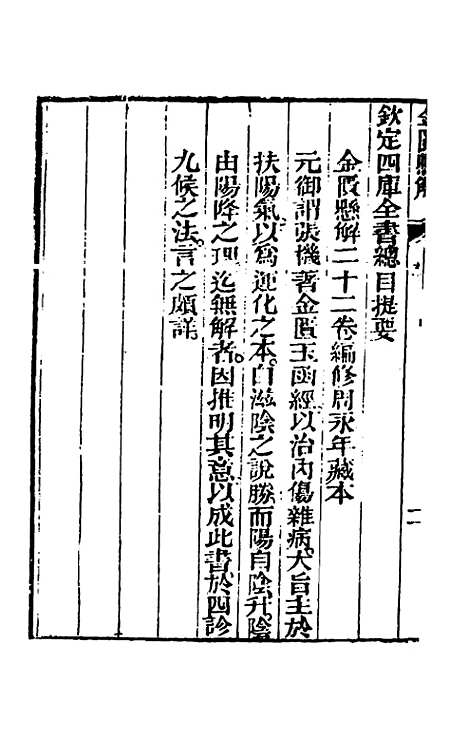 欽定四庫全書總目提要
金匱懸解二十二卷編修周永年藏本
元御謂張機著金匱玉函經以治內傷雜病大旨主於
扶陽氣以爲運化之本自滋陰之說勝而陽自陰升陰
由陽降之理迄無解者因推明其意以成此書於四診
九候之法言之頗詳